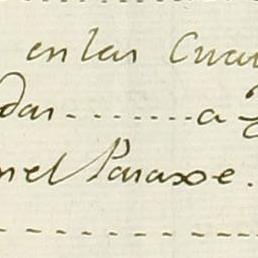 en las Cua
das........a
nel Paraxe.